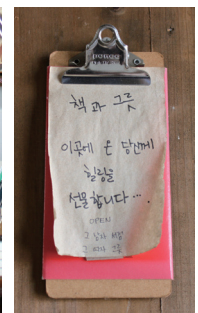 책과 그릇
이곳에 온 당신께
힐링을
선물합니다···.
OPEN